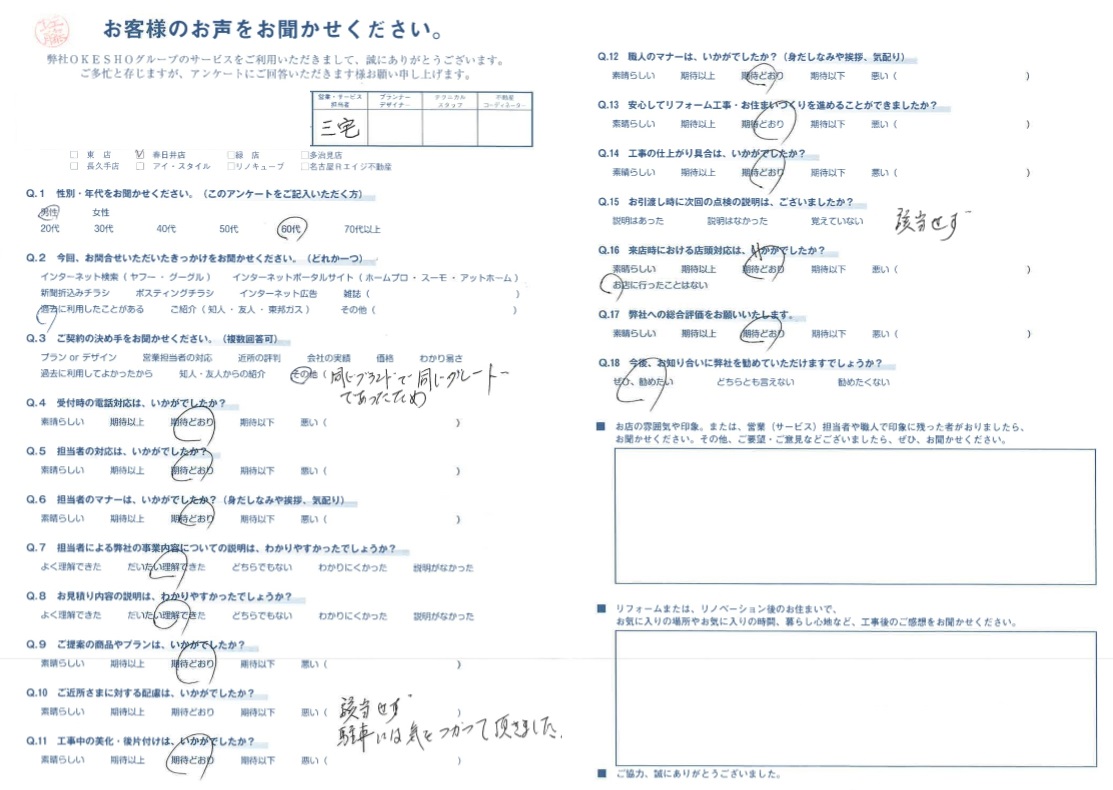 お客様のお声をお聞かせください。
弊社OKESHOグループのサービスをご利用いただきまして、誠にありがとうございます。
ご多忙と存じますが、アンケートにご回答いただきます様お願い申し上げます。
営業・サービス担当者 プランナーデザイナー テクニカルスタッフ 不動産コーディネーター
三宅
□ 東 店 ☑ 春日井店 □緑 店 □多治見店
□ 長久手店 □ アイ・スタイル □リノキューブ □名古屋Rエイジ不動産
Q.1 性別・年代をお聞かせください。（このアンケートをご記入いただく方）
男性 女性
20代 30代 40代 50代 60代 70代以上
Q.2 今回、お問合せいただいたきっかけをお聞かせください。（どれか一つ）
インターネット検索（ ヤフー ・ グーグル ） インターネットポータルサイト（ ホームプロ ・ スーモ ・ アットホーム ）
新聞折込みチラシ ポスティングチラシ インターネット広告 雑誌（ ）
過去に利用したことがある ご紹介（ 知人 ・ 友人 ・ 東邦ガス ） その他（ ）
Q.3 ご契約の決め手をお聞かせください。（複数回答可）
プラン or デザイン 営業担当者の対応 近所の評判 会社の実績 価格 わかり易さ
過去に利用してよかったから 知人・友人からの紹介 その他（ 同じブランドで同じグレート゛
であったため
Q.4 受付時の電話対応は、いかがでしたか？
素晴らしい 期待以上 期待どおり 期待以下 悪い（ ）
Q.5 担当者の対応は、いかがでしたか？
素晴らしい 期待以上 期待どおり 期待以下 悪い（ ）
Q.6 担当者のマナーは、いかがでしたか？（身だしなみや挨拶、気配り）
素晴らしい 期待以上 期待どおり 期待以下 悪い（ ）
Q.7 担当者による弊社の事業内容についての説明は、わかりやすかったでしょうか？
よく理解できた だいたい理解できた どちらでもない わかりにくかった 説明がなかった
Q.8 お見積り内容の説明は、わかりやすかったでしょうか？
よく理解できた だいたい理解できた どちらでもない わかりにくかった 説明がなかった
Q.9 ご提案の商品やプランは、いかがでしたか？
素晴らしい 期待以上 期待どおり 期待以下 悪い（ ）
Q.10 ご近所さまに対する配慮は、いかがでしたか？
素晴らしい 期待以上 期待どおり 期待以下 悪い（ 該当せず ）
駐車には気をつかって頂きました.
Q.11 工事中の美化・後片付けは、いかがでしたか？
素晴らしい 期待以上 期待どおり 期待以下 悪い（ ）
Q.12 職人のマナーは、いかがでしたか？（身だしなみや挨拶、気配り）
素晴らしい 期待以上 期待どおり 期待以下 悪い（ ）
Q.13 安心してリフォーム工事・お住まいづくりを進めることができましたか？
素晴らしい 期待以上 期待どおり 期待以下 悪い（ ）
Q.14 工事の仕上がり具合は、いかがでしたか？
素晴らしい 期待以上 期待どおり 期待以下 悪い（ ）
Q.15 お引渡し時に次回の点検の説明は、ございましたか？
説明はあった 説明はなかった 覚えていない 該当せず
Q.16 来店時における店頭対応は、いかがでしたか？
素晴らしい 期待以上 期待どおり 期待以下 悪い（ ）
お店に行ったことはない
Q.17 弊社への総合評価をお願いいたします。
素晴らしい 期待以上 期待どおり 期待以下 悪い（ ）
Q.18 今後、お知り合いに弊社を勧めていただけますでしょうか？
ぜひ、勧めたい どちらとも言えない 勧めたくない
■ お店の雰囲気や印象。または、営業（サービス）担当者や職人で印象に残った者がおりましたら、
お聞かせください。その他、ご要望・ご意見などございましたら、ぜひ、お聞かせください。
■ リフォームまたは、リノベーション後のお住まいで、
お気に入りの場所やお気に入りの時間、暮らし心地など、工事後のご感想をお聞かせください。
■ ご協力、誠にありがとうございました。